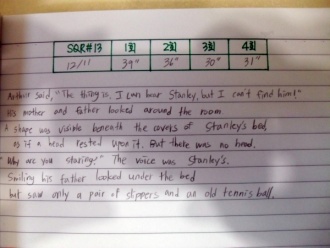 SQR#13 1회 2회 3회 4회
12/11 39" 36" 30" 31"
Arthur said, "The thing is, I can hear Stanley, but I can't find him!"
His mother and father looked around the room
A shape was visible beneath the covers of Stanley's bed
as if a head rested upon it. But there was no head.
"Why are you staring?" The voice was Stanley's.
Smiling his father looked under the bed
but saw only a pair of slippers and an old tennis ball.